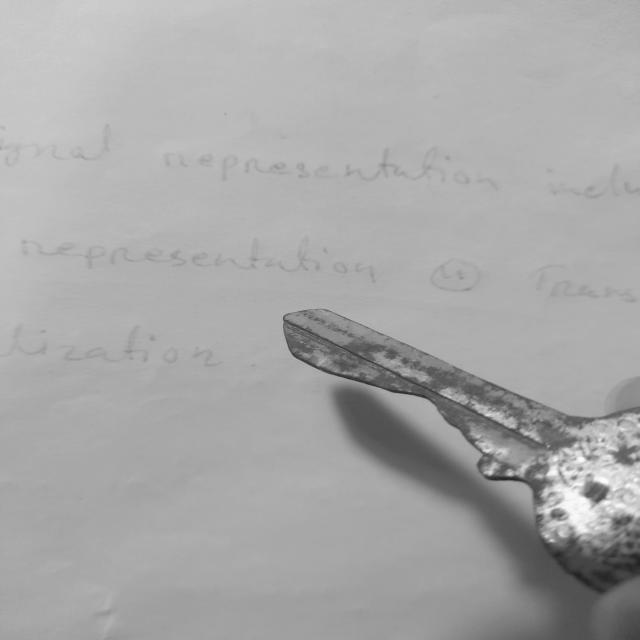 ignal representation inclu
representation (ii) Trans
lization.